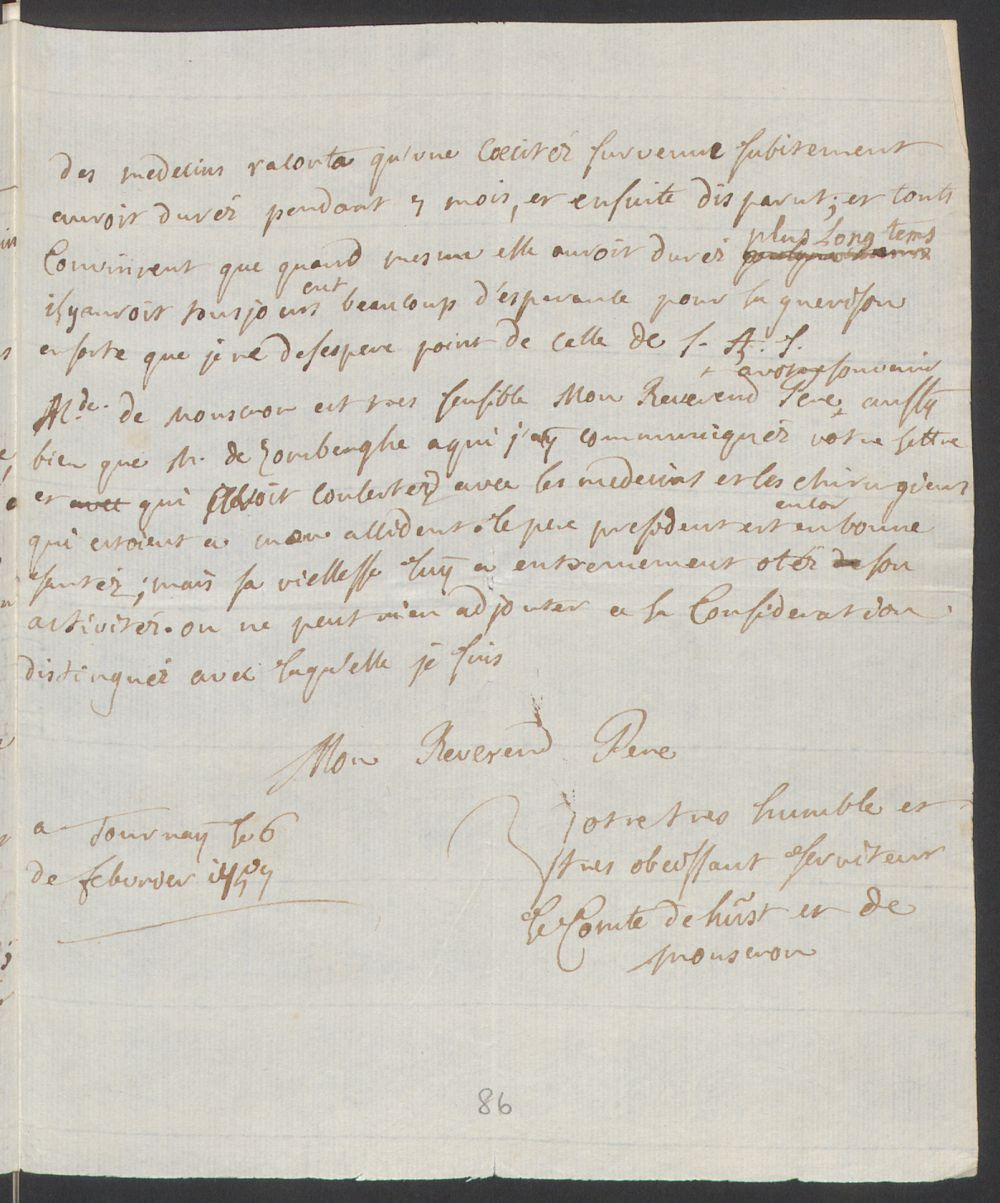 des medecins raconta qu'une Cœcitéz survenue subitement
auroit duréz pendant 7 mois, et ensuite disparut; et touts
Convinrent que quand mesme elle auroit duréz plus Long tems
il y auroit tousjours eut beaucoup d'esperance pour la guerison
ensorte que je ne desespere point de celle de S. A. S.
Mde. de Mouscron est tres sensible Mon Reverend Pere + a votre souvenir aussy
bien que Mr. de Zombenghe a qui j'ay communiquéz votre lettre
et avec qui concertéz avec les medecins et les chirugiens
qui estoient a mon accident. le pere president est encor en bonne
santéz; mais sa viellesse luy a entierement otéz de son
activitéz. on ne peut rien adjouter a la Consideration
distinguéz avec laqu'elle je suis
Mon Reverend Pere
a Tournay le 6
de febvrier 1757
Votre tres humble et
tres obeissant serviteur
Le Comte de hust et de
Mouscron
86